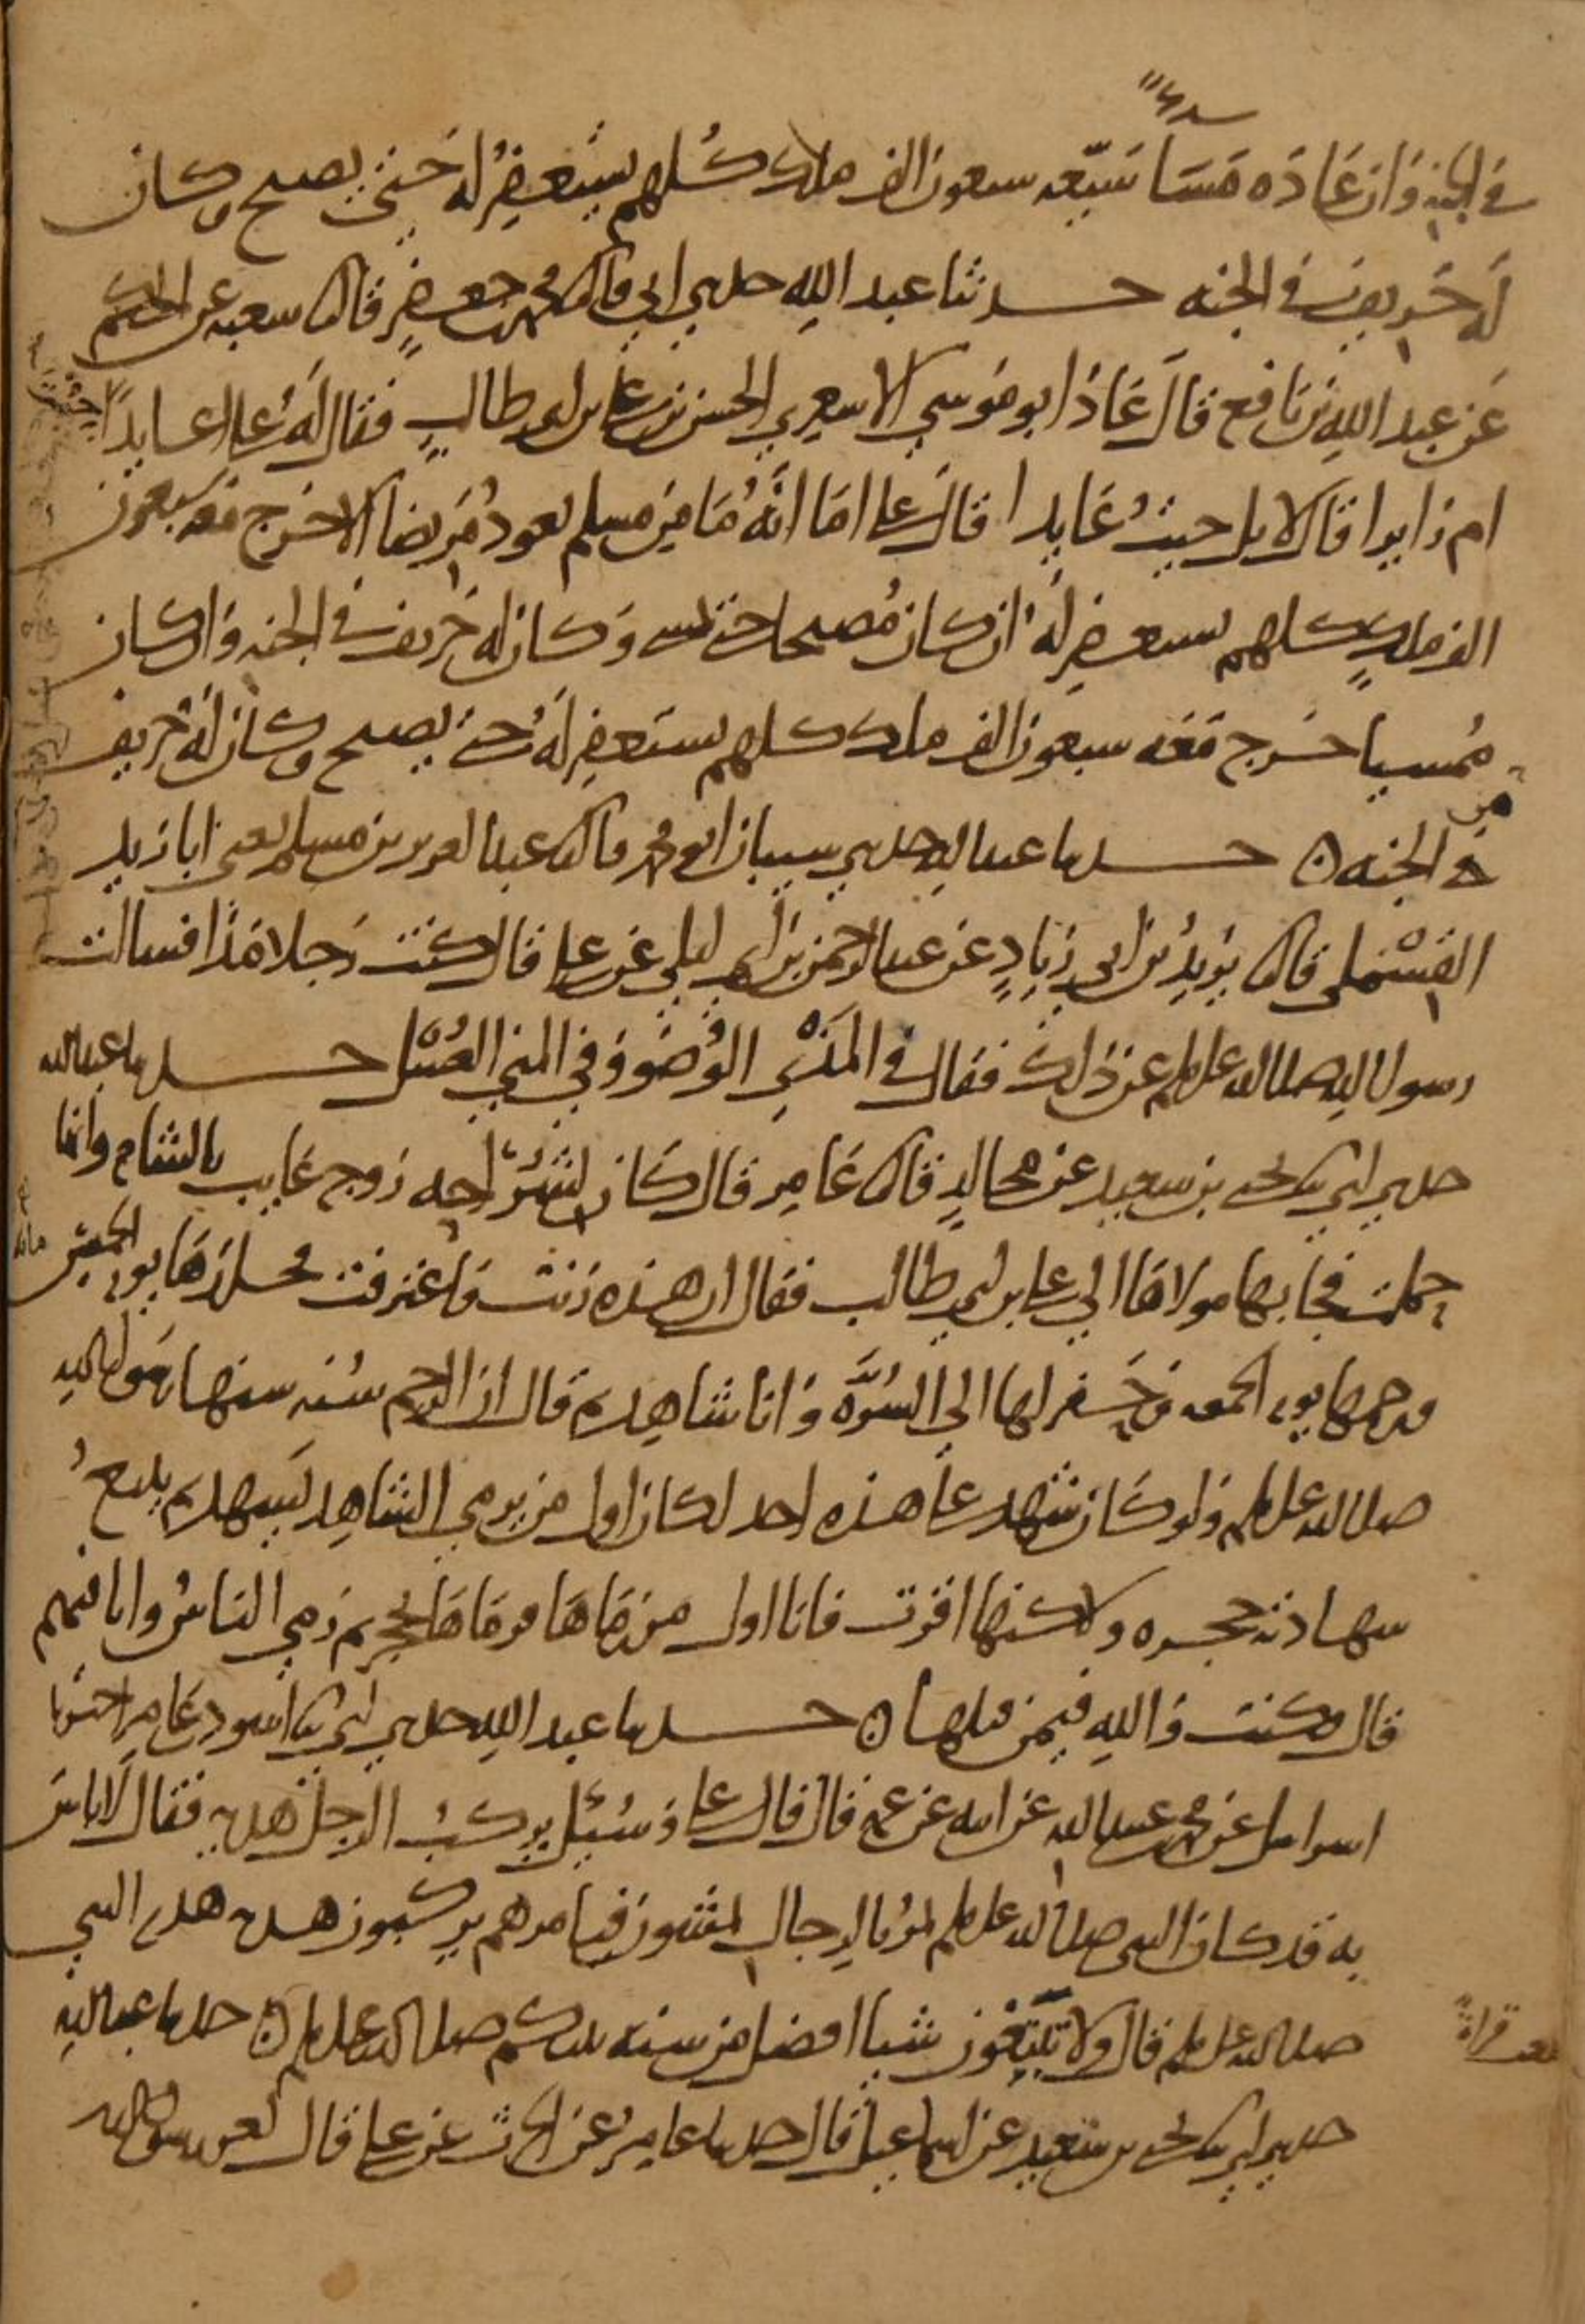 في الجنة وان عاده مساء شيعه سبعون الف ملك كلهم يستغفر له حتى يصبح وكان
له خريف في الجنه حدثنا عبد الله حدثني ابي قال محمد بن جعفر قال شعبه عن الحكم
عن عبد الله بن نافع قال عاد ابو موسي الاشعري الحسن بن علي بن ابي طالب فقال له علي اعايدا جئت
ام زايرا قال لا بل جيت عايدا قال علي اما انه ما من مسلم يعود مريضا الا خرج معه سبعون
الف ملك كلهم يستغفر له ان كان مصبحا حتى يمسي وكان له خريف في الجنه وان كان
ممسيا خرج معه سبعون الف ملك كلهم يستغفر له حتى يصبح وكان له خريف
في الجنه حدثنا عبد الله حدثني شيبان ابو محمد قال عبد العزيز بن مسلم يعني ابا زيد
القسملي قال يزيد بن ابي زياد عن عبد الرحمن بن ابي ليلي عن علي قال كنت رجلا مذا فسالت
رسول الله صلى الله عليه وسلم عن ذلك فقال في المذي الوضو وفي المني الغسل حدثنا عبد الله
حدثني ابي يحيى بن سعيد عن مجالد قال عامر قال كان لشراحه زوج غايب بالشام وانها
حملت فجا بها مولاها الي علي بن ابي طالب فقال ان هذه زنت فاعترفت فجلدها يوم الخميس مائه
ورجمها يوم الجمعه وحفر لها الي السره وانا شاهد ثم قال ان الرجم سنه سنها رسول الله
صلى الله عليه وسلم ولو كان شهد على هذه احد لكان اول من يرمي الشاهد يشهد ثم يتبع
شهادته حجره ولكنها اقرت فانا اول من رماها فرماها بحجر ثم رمي الناس وانا فيهم
قال فكنت والله فيمن قتلها حدثنا عبد الله حدثني ابي اسود بن عامر اخبرنا
اسرائيل عن محمد بن عبيد الله عن ابيه عن عمه قال قال علي وسئل يركب الرجل هديه فقال لا باس
به قد كان النبي صلى الله عليه وسلم يمر بالرجال يمشون فيامرهم يركبون هديه هدي النبي
صلى الله عليه وسلم قال ولا تتبعون شيا افضل من سنه نبيكم صلى الله عليه وسلم حدثنا عبد الله
حدثني ابي يحيى بن سعيد عن اسماعيل قال حدثنا عامر عن الحارث عن علي قال لعن رسول الله